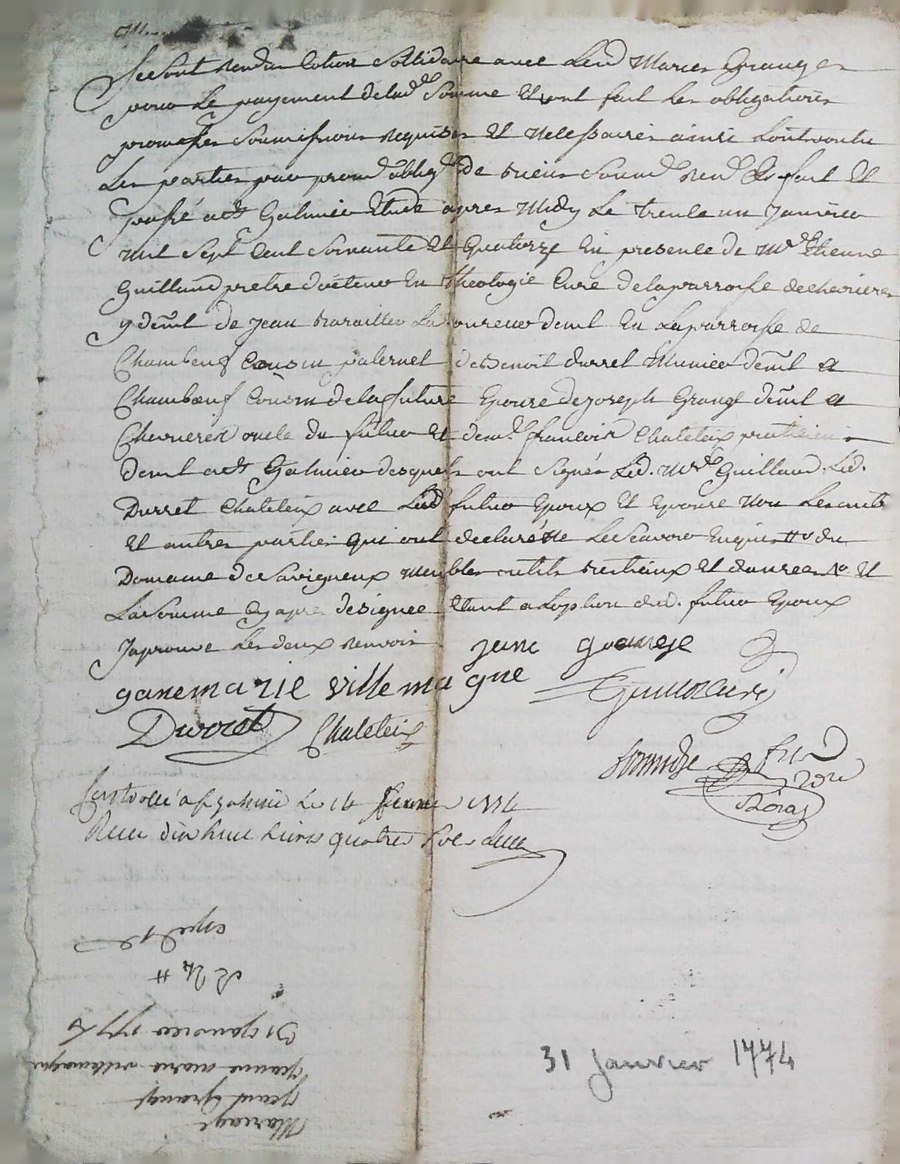 Se sont rendu Caution Sollidaire avec Led Maries Grange
pour Le payement de lad.e Somme Et ont fait Les obligations
promesses Soumissions Requises Et Necessaires ainsi Lont voulu
Les parties par prom.e oblig.n de biens Soum.n Ren.n fait Et
passé a S.t Galmier Etude apres Midy Le trente un Janvier
mil Sept Cent Soixante Et Quatorze En presence de M.re Etienne
Guilland pretre docteur En theologie Curé de la parroisse de chevrieres
y dem.t de Jean Laboureur dem.t En La parroisse de
Chambeuf Cousin paternel de Benoit Durret Munier dem.t a
Chambœuf Cousin de la future Epouse de Joseph Grange dem.t a
Chevrieres oncle du futur Et de m.e francois Chateleix praticien
dem.t a S.t Galmier desquels ont Signés Led. M.re Guilland Led.
Durret Chateleix avec Led futur Epoux Et Epouse Non Les
Et autres parties qui ont declaré Ne Le Scavoir Enquis du
Domaine de Savigneux Meubles outils bestiaux Et danrées Et
La Somme Cy apres designée Etant a du d. futur Epoux
Japrouve Les deux Renvois jean grange
gane marie ville ma gne Guilland Curé
Durret Chateleix
Controllé a S.t galmier Le 14 1774
Recu dix huit Livres quatre Sols
Exped.
R 24 #
31 Janvier 1774
Jeanne marie villemagne
Jean Grange
Mariage
31 Janvier 1774